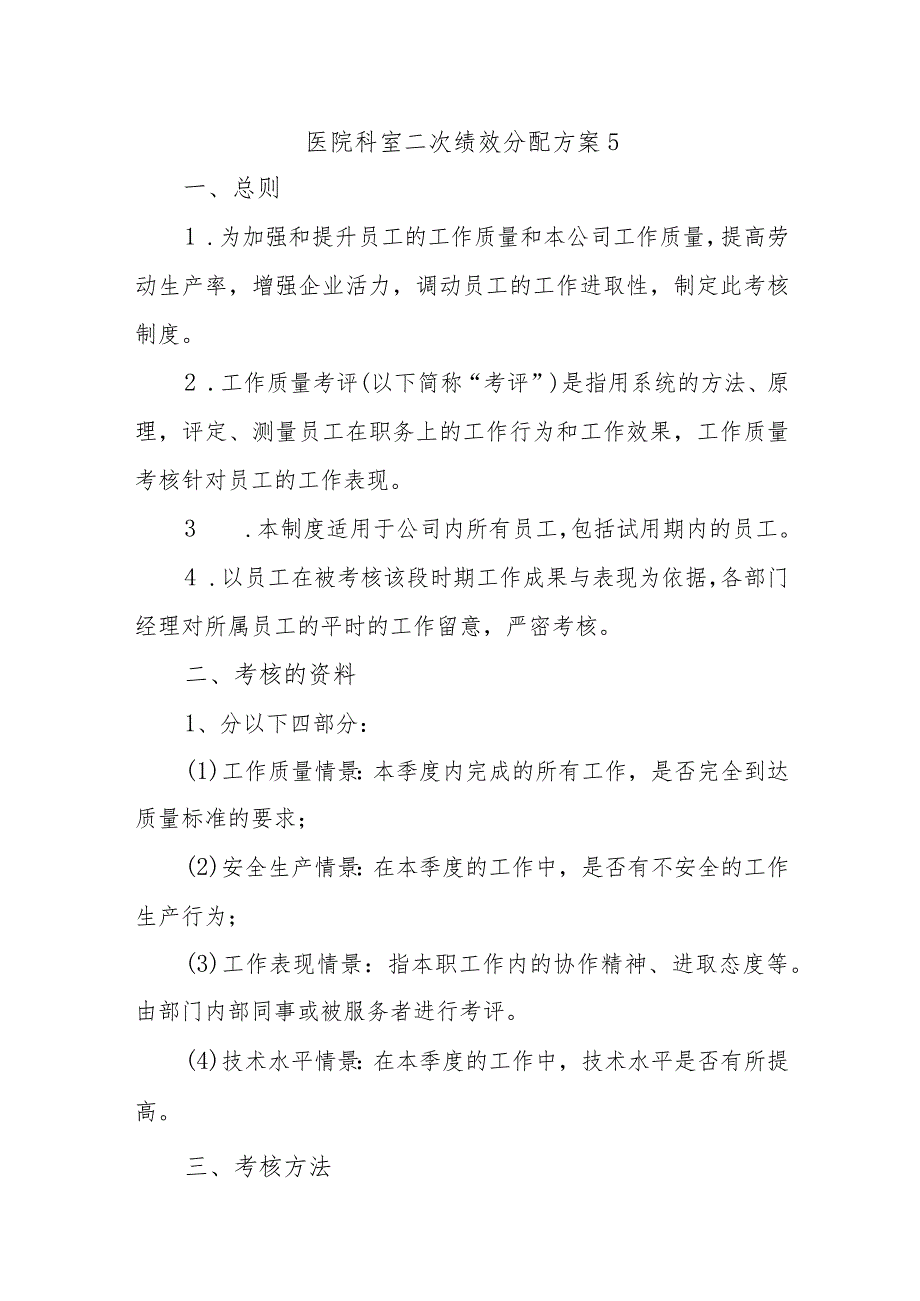 医院科室二次绩效分配方案5
一、总则
1.为加强和提升员工的工作质量和本公司工作质量，提高劳
动生产率，增强企业活力，调动员工的工作进取性，制定此考核
制度。
2.工作质量考评(以下简称“考评”)是指用系统的方法、原
理，评定、测量员工在职务上的工作行为和工作效果，工作质量
考核针对员工的工作表现。
3 .本制度适用于公司内所有员工，包括试用期内的员工。
4.以员工在被考核该段时期工作成果与表现为依据，各部门
经理对所属员工的平时的工作留意，严密考核。
二、考核的资料
1、分以下四部分：
(1)工作质量情景：本季度内完成的所有工作，是否完全到达
质量标准的要求；
(2)安全生产情景：在本季度的工作中，是否有不安全的工作
生产行为；
(3)工作表现情景：指本职工作内的协作精神、进取态度等。
由部门内部同事或被服务者进行考评。
(4)技术水平情景：在本季度的工作中，技术水平是否有所提
高。
三、考核方法